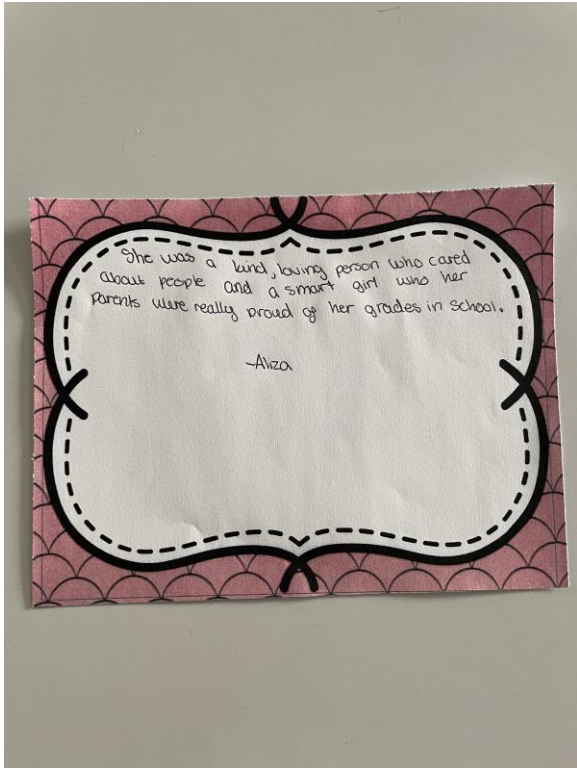 She was a kind, loving person who cared
about people and a smart girl who her
parents were really proud of her grades in school.
-Aliza